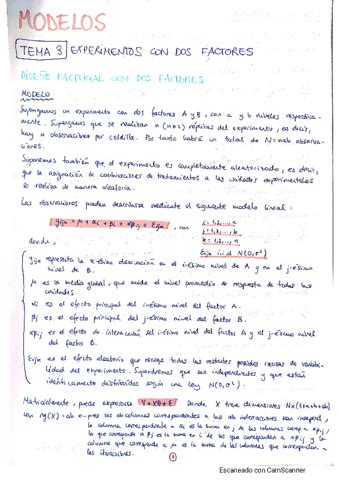 MODELOS
TEMA 3 EXPERIMENTOS CON DOS FACTORES
DISEÑO FACTORIAL CON DOS FACTORES
MODELO
Supongamos un experimento con dos factores A y B, con a y b niveles respectiva-
mente. Supongamos que se realizan n (n≥2) réplicas del experimento, es decir,
hay n observaciones por celdilla. Por tanto habrá un total de N=nab observa-
ciones.
Suponemos también que el experimento es completamente aleatorizado, es decir,
que la asignación de combinaciones de tratamientos a las unidades experimentales
se realiza de manera aleatoria.
Las observaciones pueden describirse mediante el siguiente modelo lineal:
yijk = μ + αi + βj + αβij + Eijk, con
i=1,2,...,a
j=1,2,...,b
k=1,2,...,n
Eijk i.i.d N(0,σ²)
donde,
yijk representa la k-ésima observación en el i-ésimo nivel de A y en el j-ésimo
nivel de B.
μ es la media global, que mide el nivel promedio de respuesta de todas las
unidades.
αi es el efecto principal del i-ésimo nivel del factor A.
βj es el efecto principal del j-ésimo nivel del factor B.
αβij es el efecto de interacción del i-ésimo nivel del factor A y el j-ésimo nivel
del factor B.
Eijk es el efecto aleatorio que recoge todas las restantes posibles causas de variabi-
lidad del experimento. Supondremos que son independientes y que están
idénticamente distribuidos según una ley N(0,σ²).
Matricialmente, puede expresarse Y=Xβ+E. Donde X tiene dimensiones N×(1+a+b+ab)
con rg(X)=ab
la columna correspondiente a αi es la suma en j de las columnas corresp. αβij,
la que corresponde a βj es la suma en i de las que corresponden a αβij y la
columna que corresponde a μ es la suma de las columnas que corresponden a
las interacciones.
1
Escaneado con CamScanner